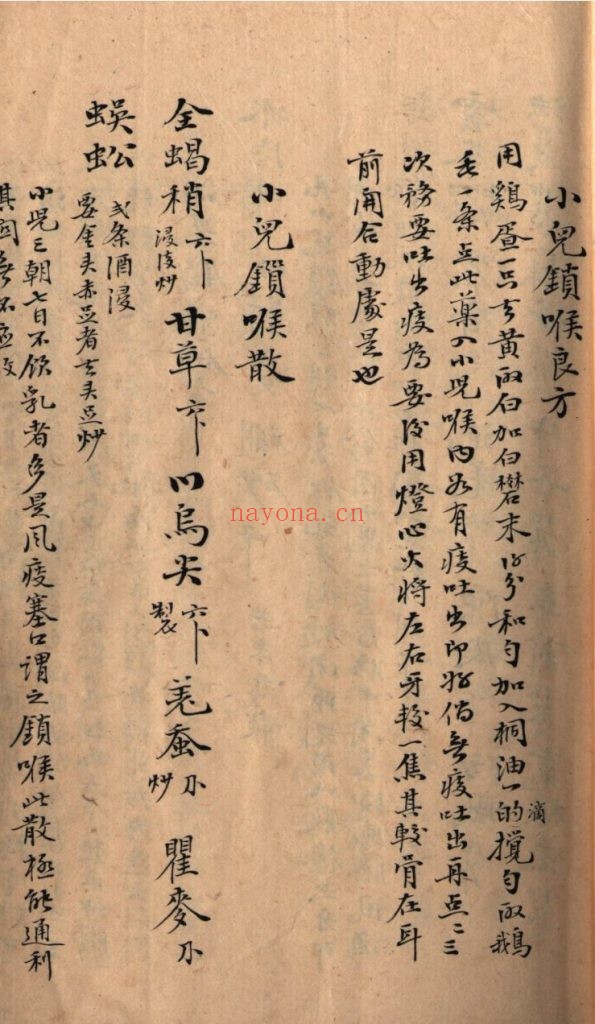 小兒鎖喉良方
用鷄蛋一只去黃取白加白礬末 分和勻加入桐油一的滴攪勻取鵝
毛一条点此藥入小児喉内如有痰吐出即好倘無痰吐出再点二三
次務要吐出痰為要後用燈心火將左右牙較一焦其較骨在耳
前開合動處是也
小兒鎖喉散
全蝎稍 浸後炒 甘草 川烏尖 製 羗蚕 炒 瞿麥
蜈蚣 弍条酒浸
要金头赤足者去头足炒
小児三朝七日不飲乳者多是风痰塞口謂之鎖喉此散極能通利
nayona.cn